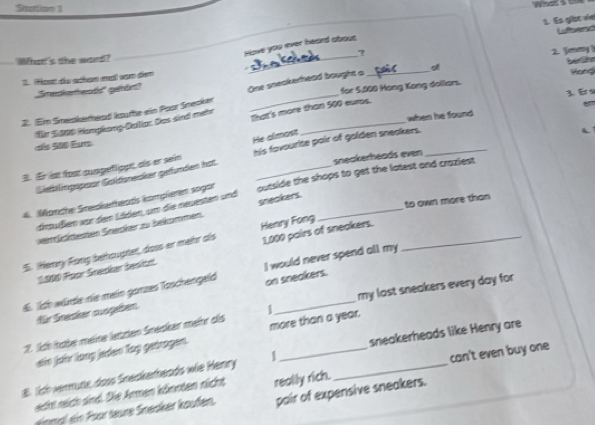 Station 1
What's the word?
1. Hast du schon mal von den
„Sneakerheads" gehört?
2. Ein Sneakerhead kaufte ein Paar Sneaker
für 5.000 Hongkong-Dollar. Das sind mehr
als 500 Euro.
3. Er ist fast ausgeflippt, als er sein
Lieblingspaar Goldsneaker gefunden hat.
4. Manche Sneakerheads kampieren sogar
draußen vor den Läden, um die neuesten und
verrücktesten Sneaker zu bekommen.
5. Henry Fong behauptet, dass er mehr als
1.000 Paar Sneaker besitzt.
6. Ich würde nie mein ganzes Taschengeld
für Sneaker ausgeben.
7. Ich habe meine letzten Sneaker mehr als
ein Jahr lang jeden Tag getragen.
8. Ich vermute, dass Sneakerheads wie Henry
echt reich sind. Die Armen könnten nicht
einmal ein Paar teure Sneaker kaufen.
Have you ever heard about
?
One sneakerhead bought a pair of
for 5,000 Hong Kong dollars.
That's more than 500 euros.
He almost when he found
his favourite pair of golden sneakers.
sneakerheads even
outside the shops to get the latest and craziest
sneakers.
Henry Fong to own more than
1,000 pairs of sneakers.
I would never spend all my
on sneakers.
I my last sneakers every day for
more than a year.
I sneakerheads like Henry are
really rich. can't even buy one
pair of expensive sneakers.
What's the
1. Es gibt
2. Jimmy
berühm
Hong
3. Er s
4.